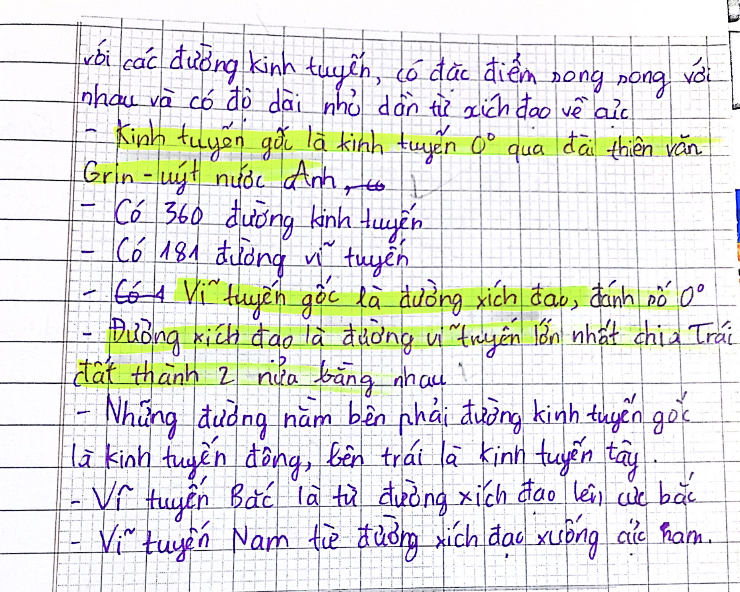 với các đường kinh tuyến, có đặc điểm song song với
nhau và có độ dài nhỏ dần từ xích đạo về cực
- Kinh tuyến gốc là kinh tuyến 0° qua đài thiên văn
Grin-uýt nước Anh,
- Có 360 đường kinh tuyến
- Có 181 đường vĩ tuyến
- Có 1 Vĩ tuyến gốc là đường xích đạo, đánh số 0°
- Đường xích đạo là đường vĩ tuyến lớn nhất chia Trái
đất thành 2 nửa bằng nhau
- Những đường nằm bên phải đường kinh tuyến gốc
là kinh tuyến đông, bên trái là kinh tuyến tây.
- Vĩ tuyến Bắc là từ đường xích đạo lên cực bắc
- Vĩ tuyến Nam từ đường xích đạo xuống cực nam.